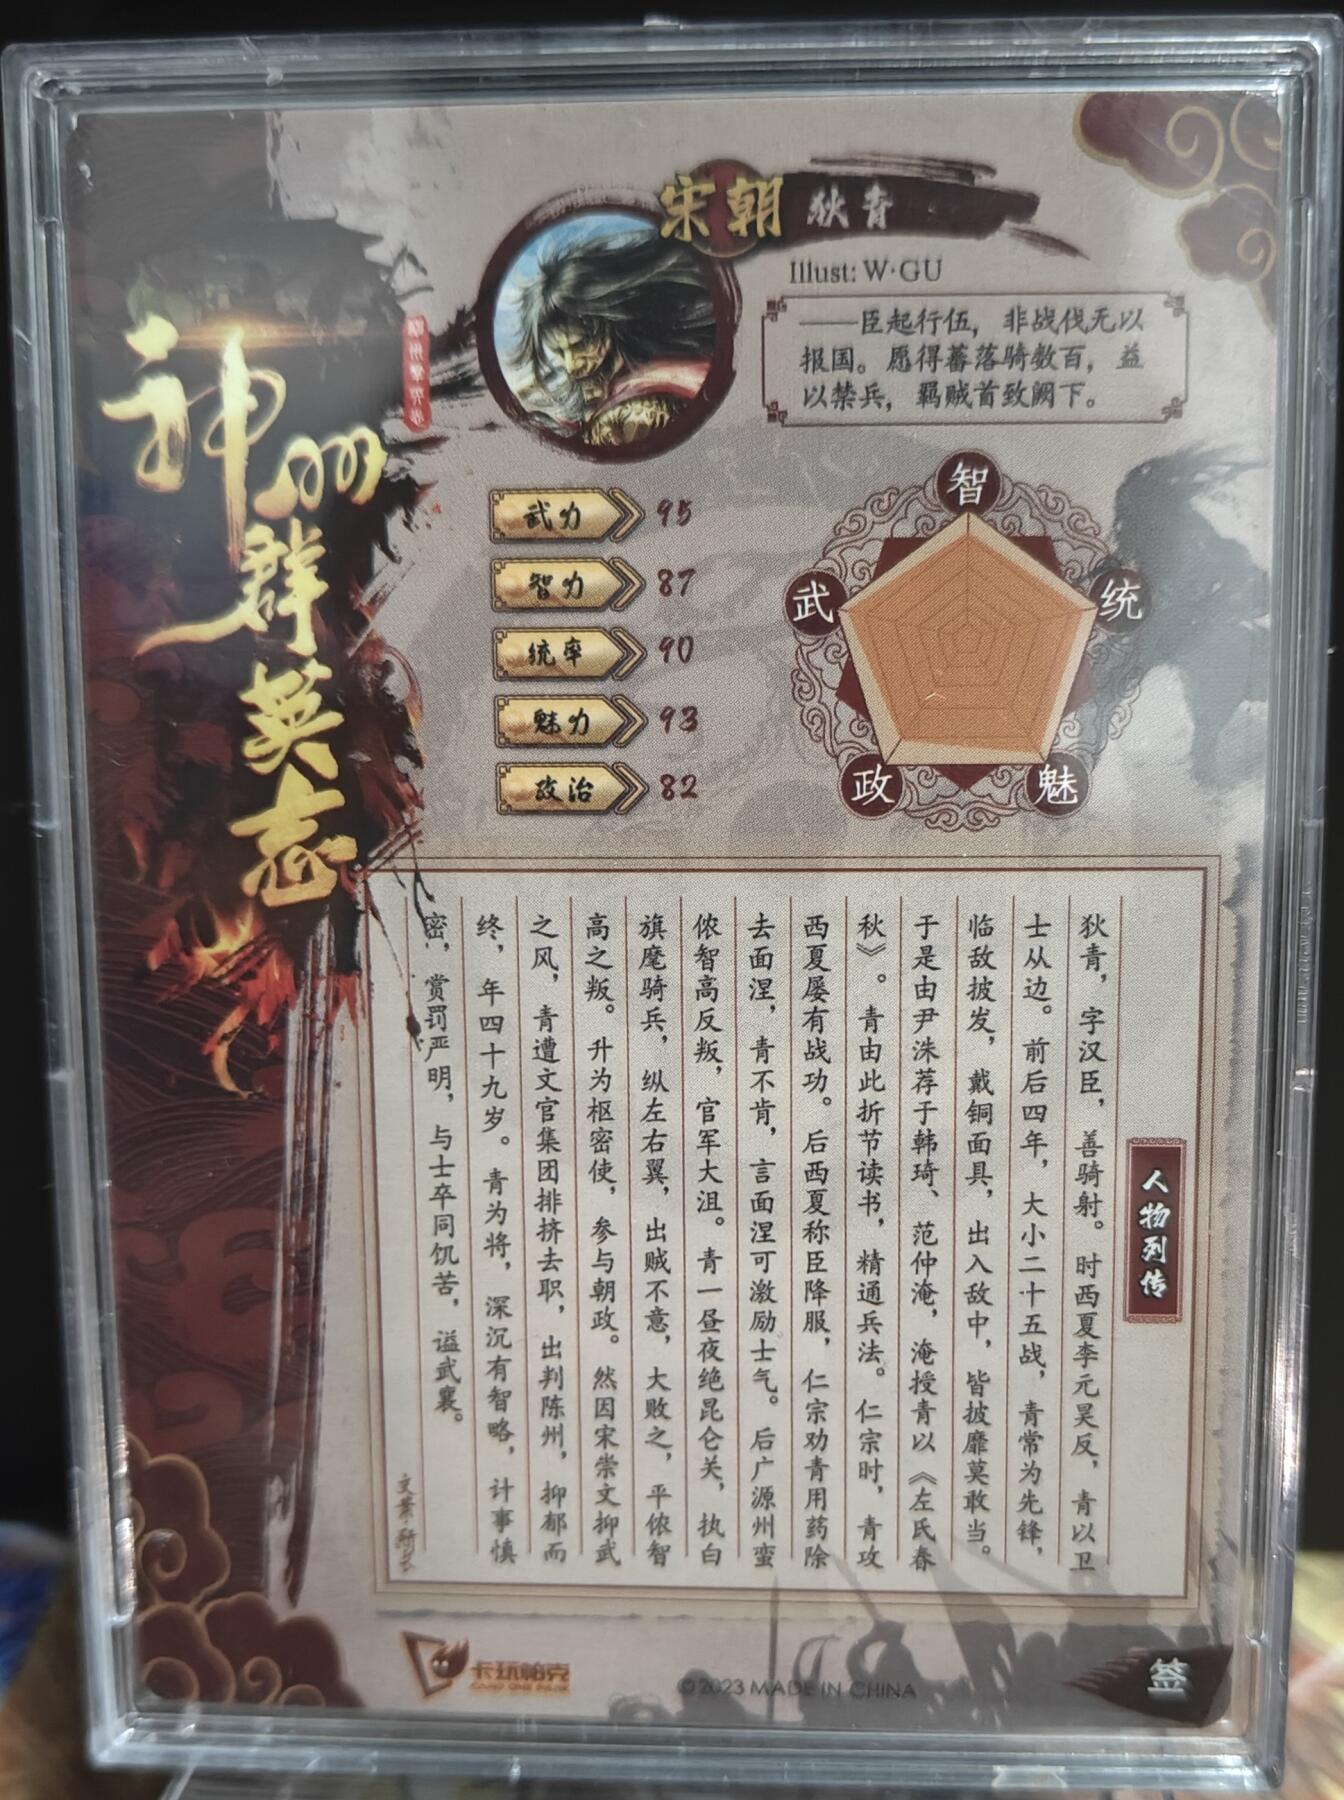 神州
群
英
志
宋朝 狄青
Illust: W·GU
——臣起行伍，非战伐无以
报国。愿得蕃落骑数百，益
以禁兵，羁贼首致阙下。
武力 95
智力 87
统率 90
魅力 93
政治 82
智
武
统
政
魅
人物列传
狄青，字汉臣，善骑射。时西夏李元昊反，青以卫
士从边。前后四年，大小二十五战，青常为先锋，
临敌披发，戴铜面具，出入敌中，皆披靡莫敢当。
于是由尹洙荐于韩琦、范仲淹，淹授青以《左氏春
秋》。青由此折节读书，精通兵法。仁宗时，青攻
西夏屡有战功。后西夏称臣降服，仁宗劝青用药除
去面涅，青不肯，言面涅可激励士气。后广源州蛮
侬智高反叛，官军大沮。青一昼夜绝昆仑关，执白
旗麾骑兵，纵左右翼，出贼不意，大败之，平侬智
高之叛。升为枢密使，参与朝政。然因宋崇文抑武
之风，青遭文官集团排挤去职，出判陈州，抑郁而
终，年四十九岁。青为将，深沉有智略，计事慎
密，赏罚严明，与士卒同饥苦，谥武襄。
卡玩帕克
©2023 MADE IN CHINA
签